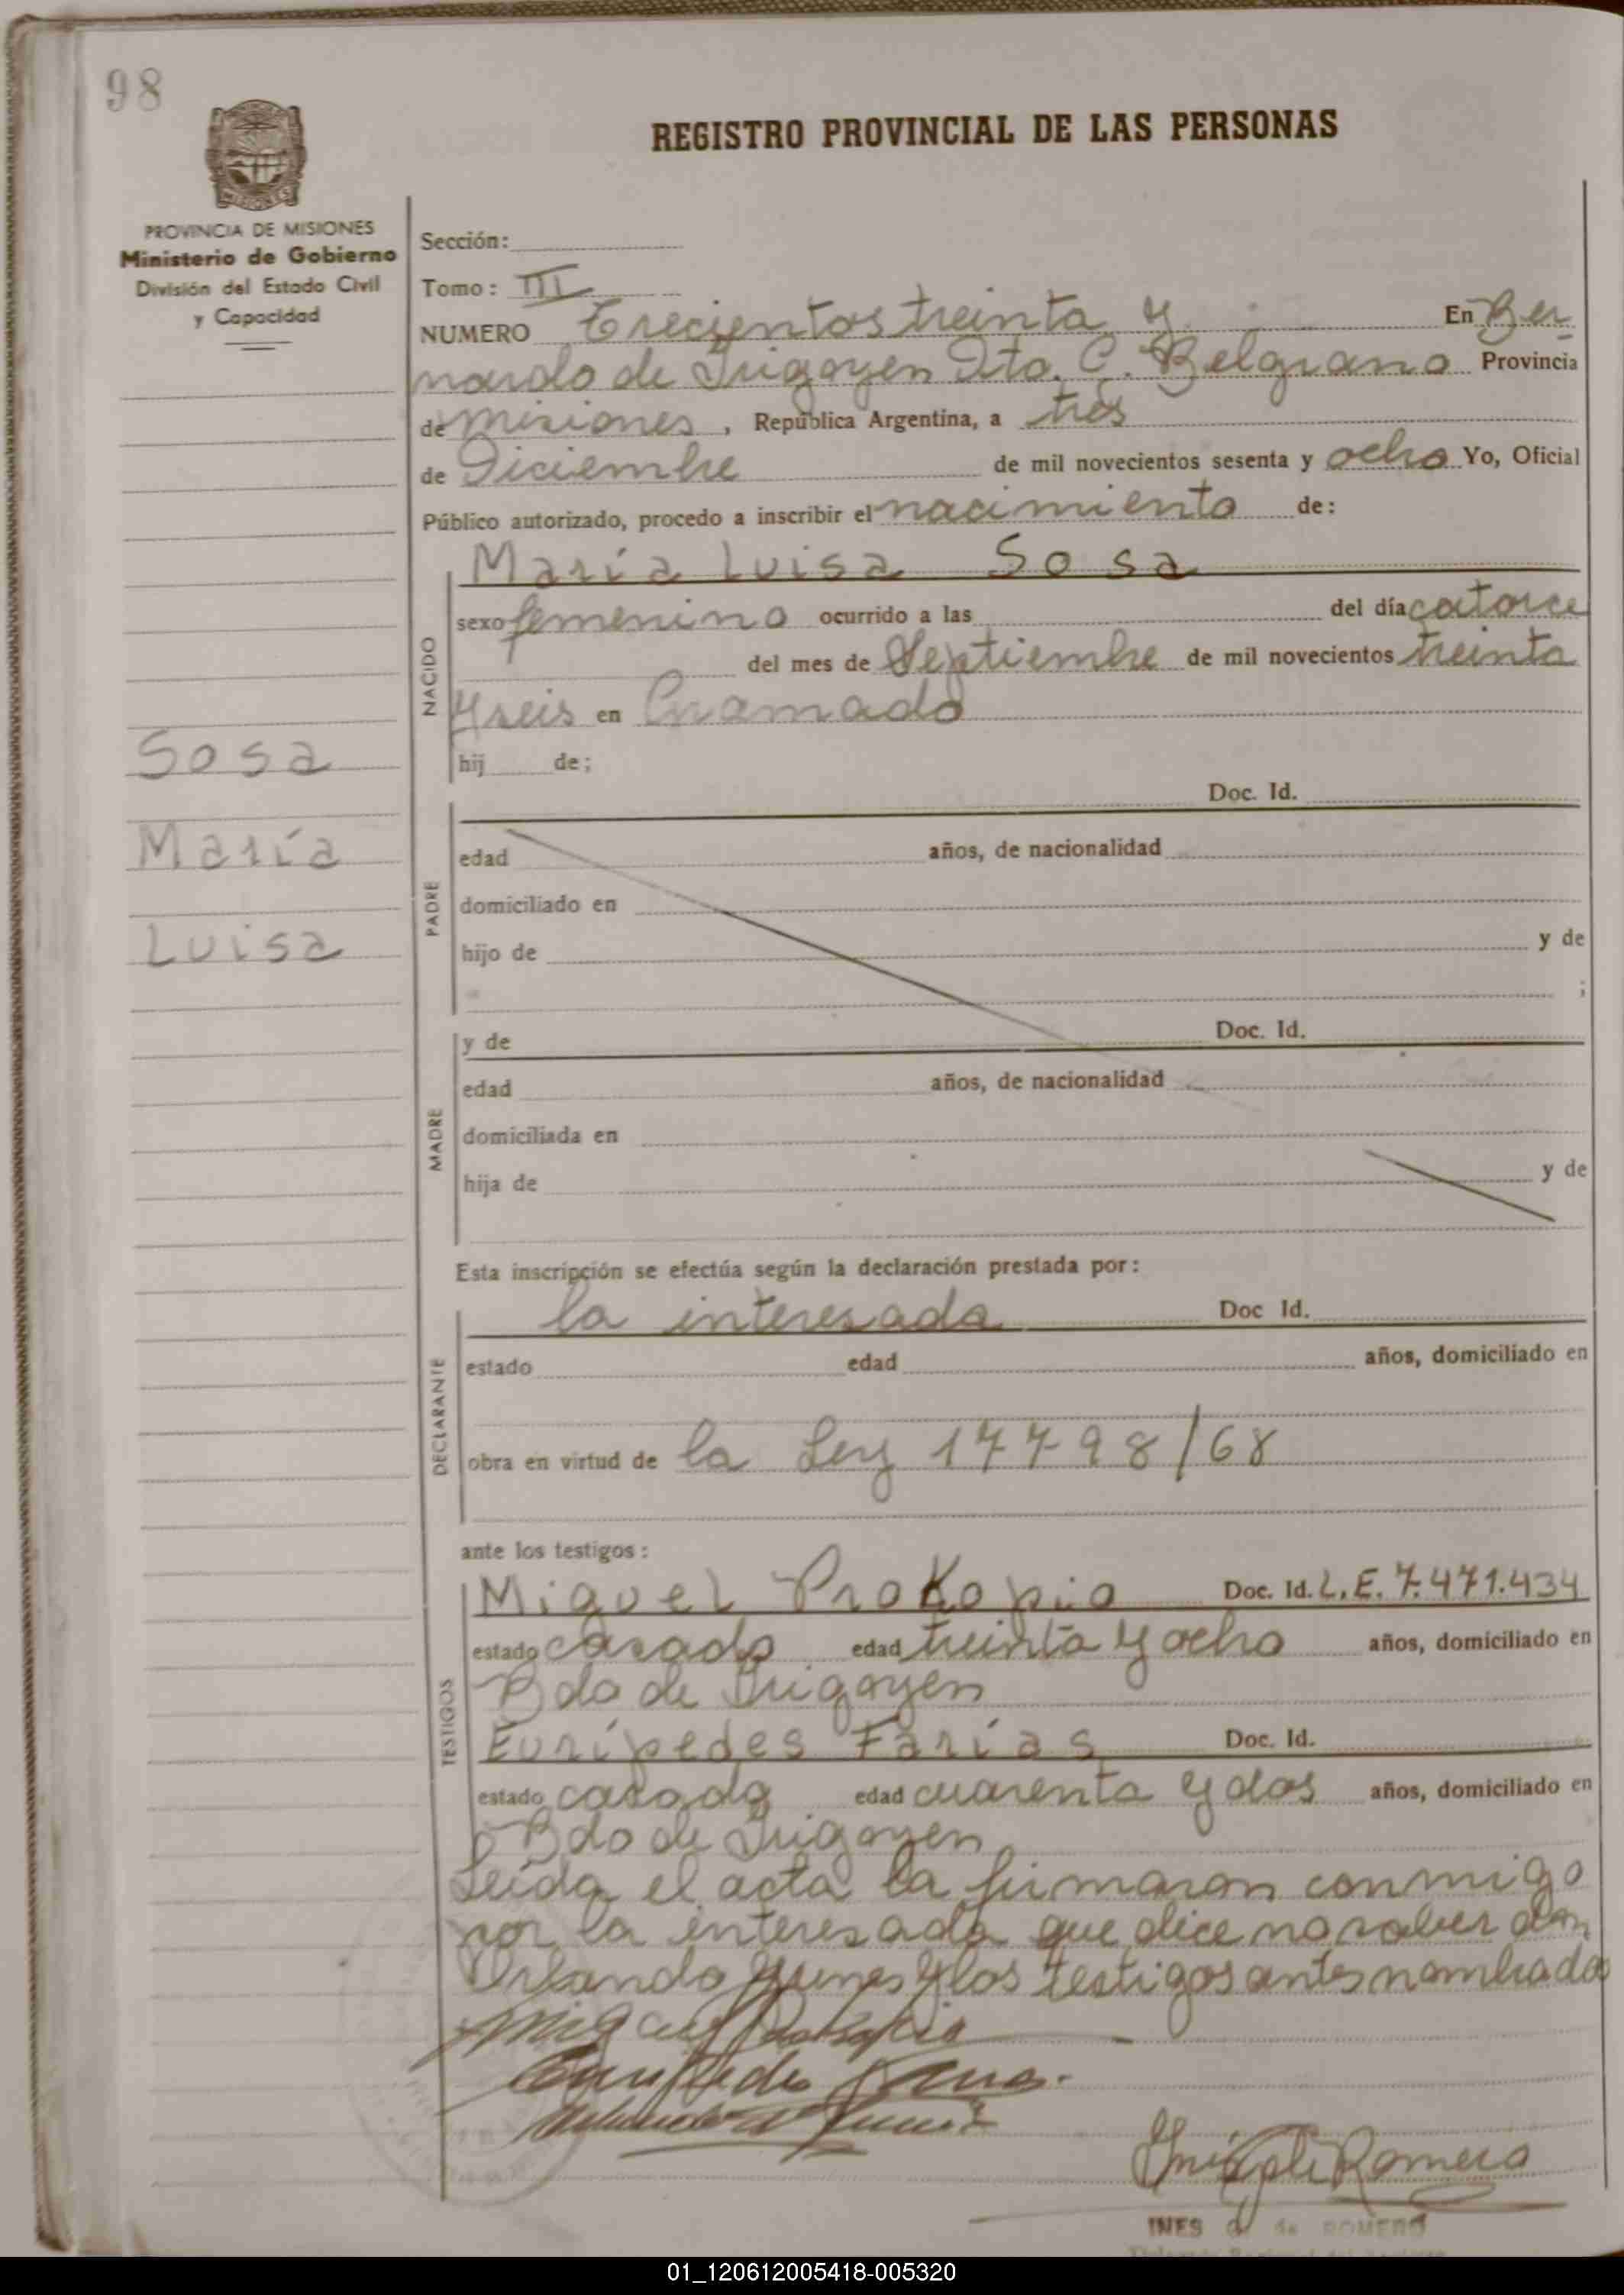 98
REGISTRO PROVINCIAL DE LAS PERSONAS
MISIONES
PROVINCIA DE MISIONES
Ministerio de Gobierno
División del Estado Civil
y Capacidad
Sección:
Tomo: III
NUMERO Trecientos treinta y En Ber
nardo de Irigoyen Dto. G. Belgrano Provincia
de Misiones, República Argentina, a tres
de Diciembre de mil novecientos sesenta y ocho Yo, Oficial
Público autorizado, procedo a inscribir el nacimiento de:
María Luisa Sosa
NACIDO
sexo femenino ocurrido a las del día catorce
del mes de Septiembre de mil novecientos treinta
y seis en
hij de;
Sosa
María
Luisa
Doc. Id.
PADRE
edad años, de nacionalidad
domiciliado en
hijo de y de
;
y de Doc. Id.
MADRE
edad años, de nacionalidad
domiciliada en
hija de y de
Esta inscripción se efectúa según la declaración prestada por:
la interesada Doc Id.
DECLARANTE
estado edad años, domiciliado en
obra en virtud de la Ley 17798/68
ante los testigos:
Miguel Prokopio Doc. Id. L.E. 7.471.434
TESTIGOS
estado casado edad treinta y ocho años, domiciliado en
Bdo de Irigoyen
Eurípedes Farías Doc. Id.
estado casado edad cuarenta y dos años, domiciliado en
Bdo de Irigoyen
Leída el acta la firmaron conmigo
por la interesada que dice no saber don
Orlando y los testigos antes nombrados
Miguel Prokopio
Inés G de Romero
INES G. de ROMERO
01_120612005418-005320